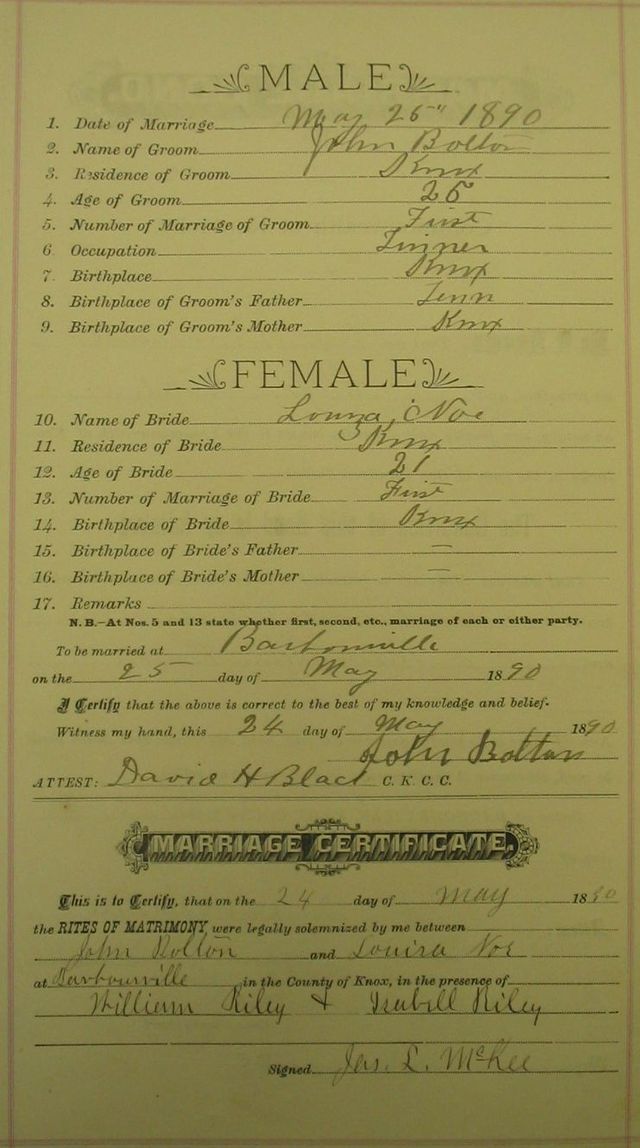 MALE
1. Date of Marriage May 25" 1890
2. Name of Groom John Bolton
3. Residence of Groom Knox
4. Age of Groom 25
5. Number of Marriage of Groom First
6 Occupation Tinner
7 Birthplace Knox
8. Birthplace of Groom's Father Tenn
9. Birthplace of Groom's Mother Knox
FEMALE
10. Name of Bride Louiza Noe
11. Residence of Bride Knox
12. Age of Bride 21
13. Number of Marriage of Bride First
14. Birthplace of Bride Knox
15. Birthplace of Bride's Father —
16. Birthplace of Bride's Mother —
17. Remarks
N. B.—At Nos. 5 and 13 state whether first, second, etc., marriage of each or either party.
To be married at Barbourville
on the 25 day of May 1890
I Certify that the above is correct to the best of my knowledge and belief.
Witness my hand, this 24 day of May 1890
John Bolton
ATTEST: David H Black C. K. C. C.
MARRIAGE CERTIFICATE.
This is to Certify, that on the 24 day of May 1890
the RITES OF MATRIMONY, were legally solemnized by me between
John Bolton and Louisa Noe
at Barbourville in the County of Knox, in the presence of
William Riley & Isabell Riley
Signed Jas. L. McKee